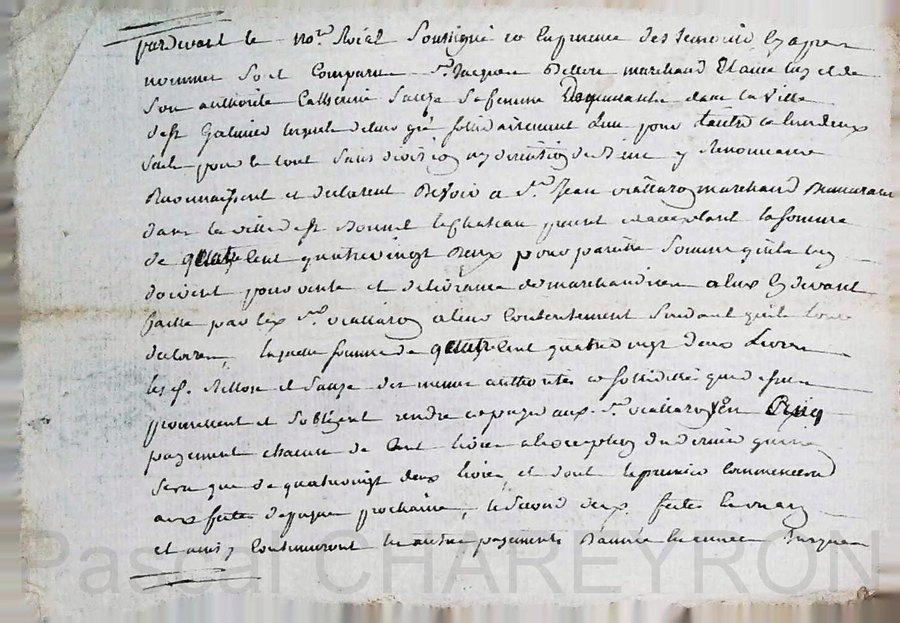 pardevant le no.re Roial soussigné et en presence des temoins cy apres
nommes so.t comparu s.r Jacques marchand et avec luy et de
son authorité Catherine Sauze sa femme demeurants dans la ville
de s.t Galmier lesquels de leur gré solidairement l'un pour l'autre et l'un deux
seul pour le tout sans division ny de y renonceants
Reconnaissent et declarent devoir a s.r Jean marchand demeurant
dans la ville de s.t Bonnet le Chateau present et acceptant la somme
de quatre cent quatre vingt deux pour pareille somme quils luy
doivent pour vente et delivrance de marchandises a eux cy devant
faitte par led. s.r a leur contentement sindant quils l'ont
declaré, laquelle somme de quatre cent quatre vingt deux livres
lesd. et Sauze des memes authorités et solidité que dessus
promettent et sobligent rendre et payer aud. s.r en cinq
payements chacun de cent livres a lexception du dernier qui ne
sera que de quatre vingt deux livres, et dont le premier commencera
aux fettes de paques prochaine, le second aux fettes
et ainsy continueront les autres payements d'année en année jusques
Pascal CHAREYRON